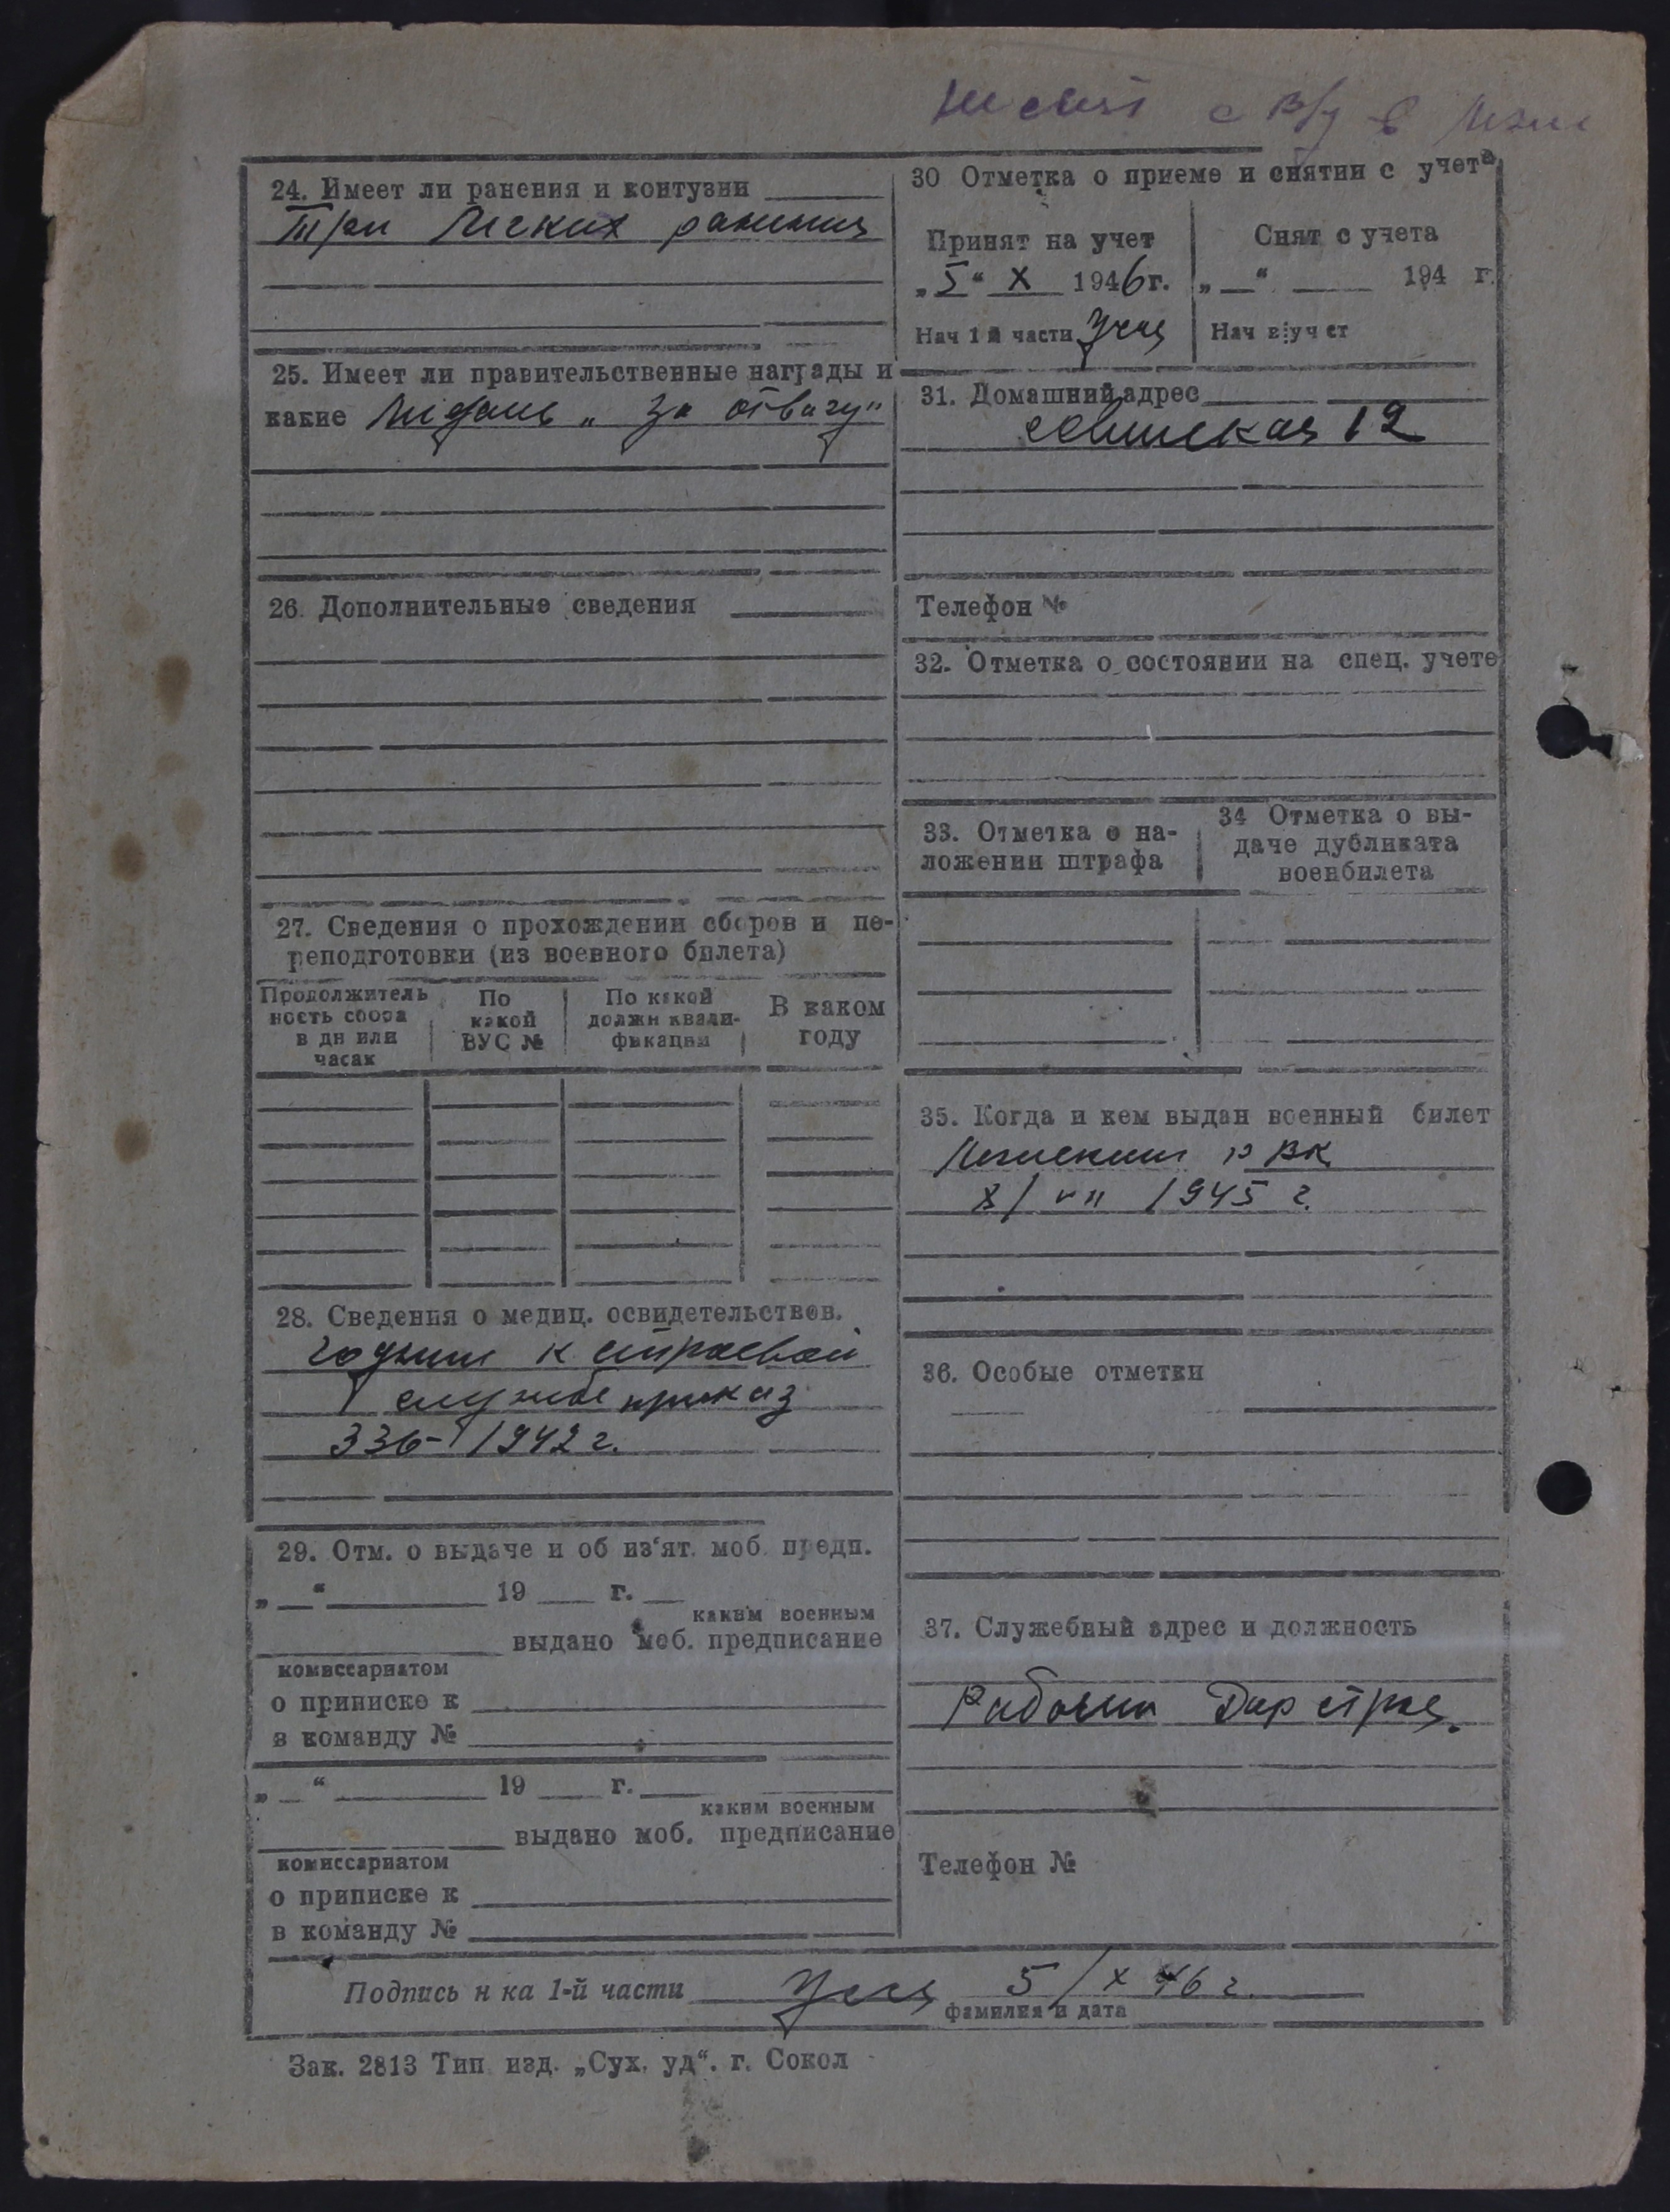 24. Имеет ли ранения и контузии
Три легких ранения
25. Имеет ли правительственные награды и
какие Медаль „За отвагу"
26. Дополнительные сведения
27. Сведения о прохождении сборов и пе-
реподготовки (из военного билета)
Продолжитель
ность сбора
в дн или
часах
По
какой
ВУС №
По какой
должн квали-
фикации
В каком
году
28. Сведения о медиц. освидетельствов.
годный к строевой
службе приказ
336-1942 г.
29. Отм. о выдаче и об из'ят. моб. предп.
„ “ 19 г.
каким военным
выдано моб. предписание
комиссариатом
о приписке к
в команду №
„ “ 19 г.
каким военным
выдано моб. предписание
комиссариатом
о приписке к
в команду №
30 Отметка о приеме и снятии с учета
Принят на учет
„5“ X 1946г.
Нач 1й части
Снят с учета
„ “ 194 г.
Нач в/уч ст
31. Домашний адрес
12
Телефон №
32. Отметка о состоянии на спец. учете
33. Отметка о на-
ложении штрафа
34 Отметка о вы-
даче дубликата
военбилета
35. Когда и кем выдан военный билет
РВК
1945 г.
36. Особые отметки
37. Служебный адрес и должность
Рабочий
Телефон №
Подпись н ка 1-й части 5/X 46 г.
фамилия и дата
Зак. 2813 Тип изд. „Сух. уд“. г. Сокол